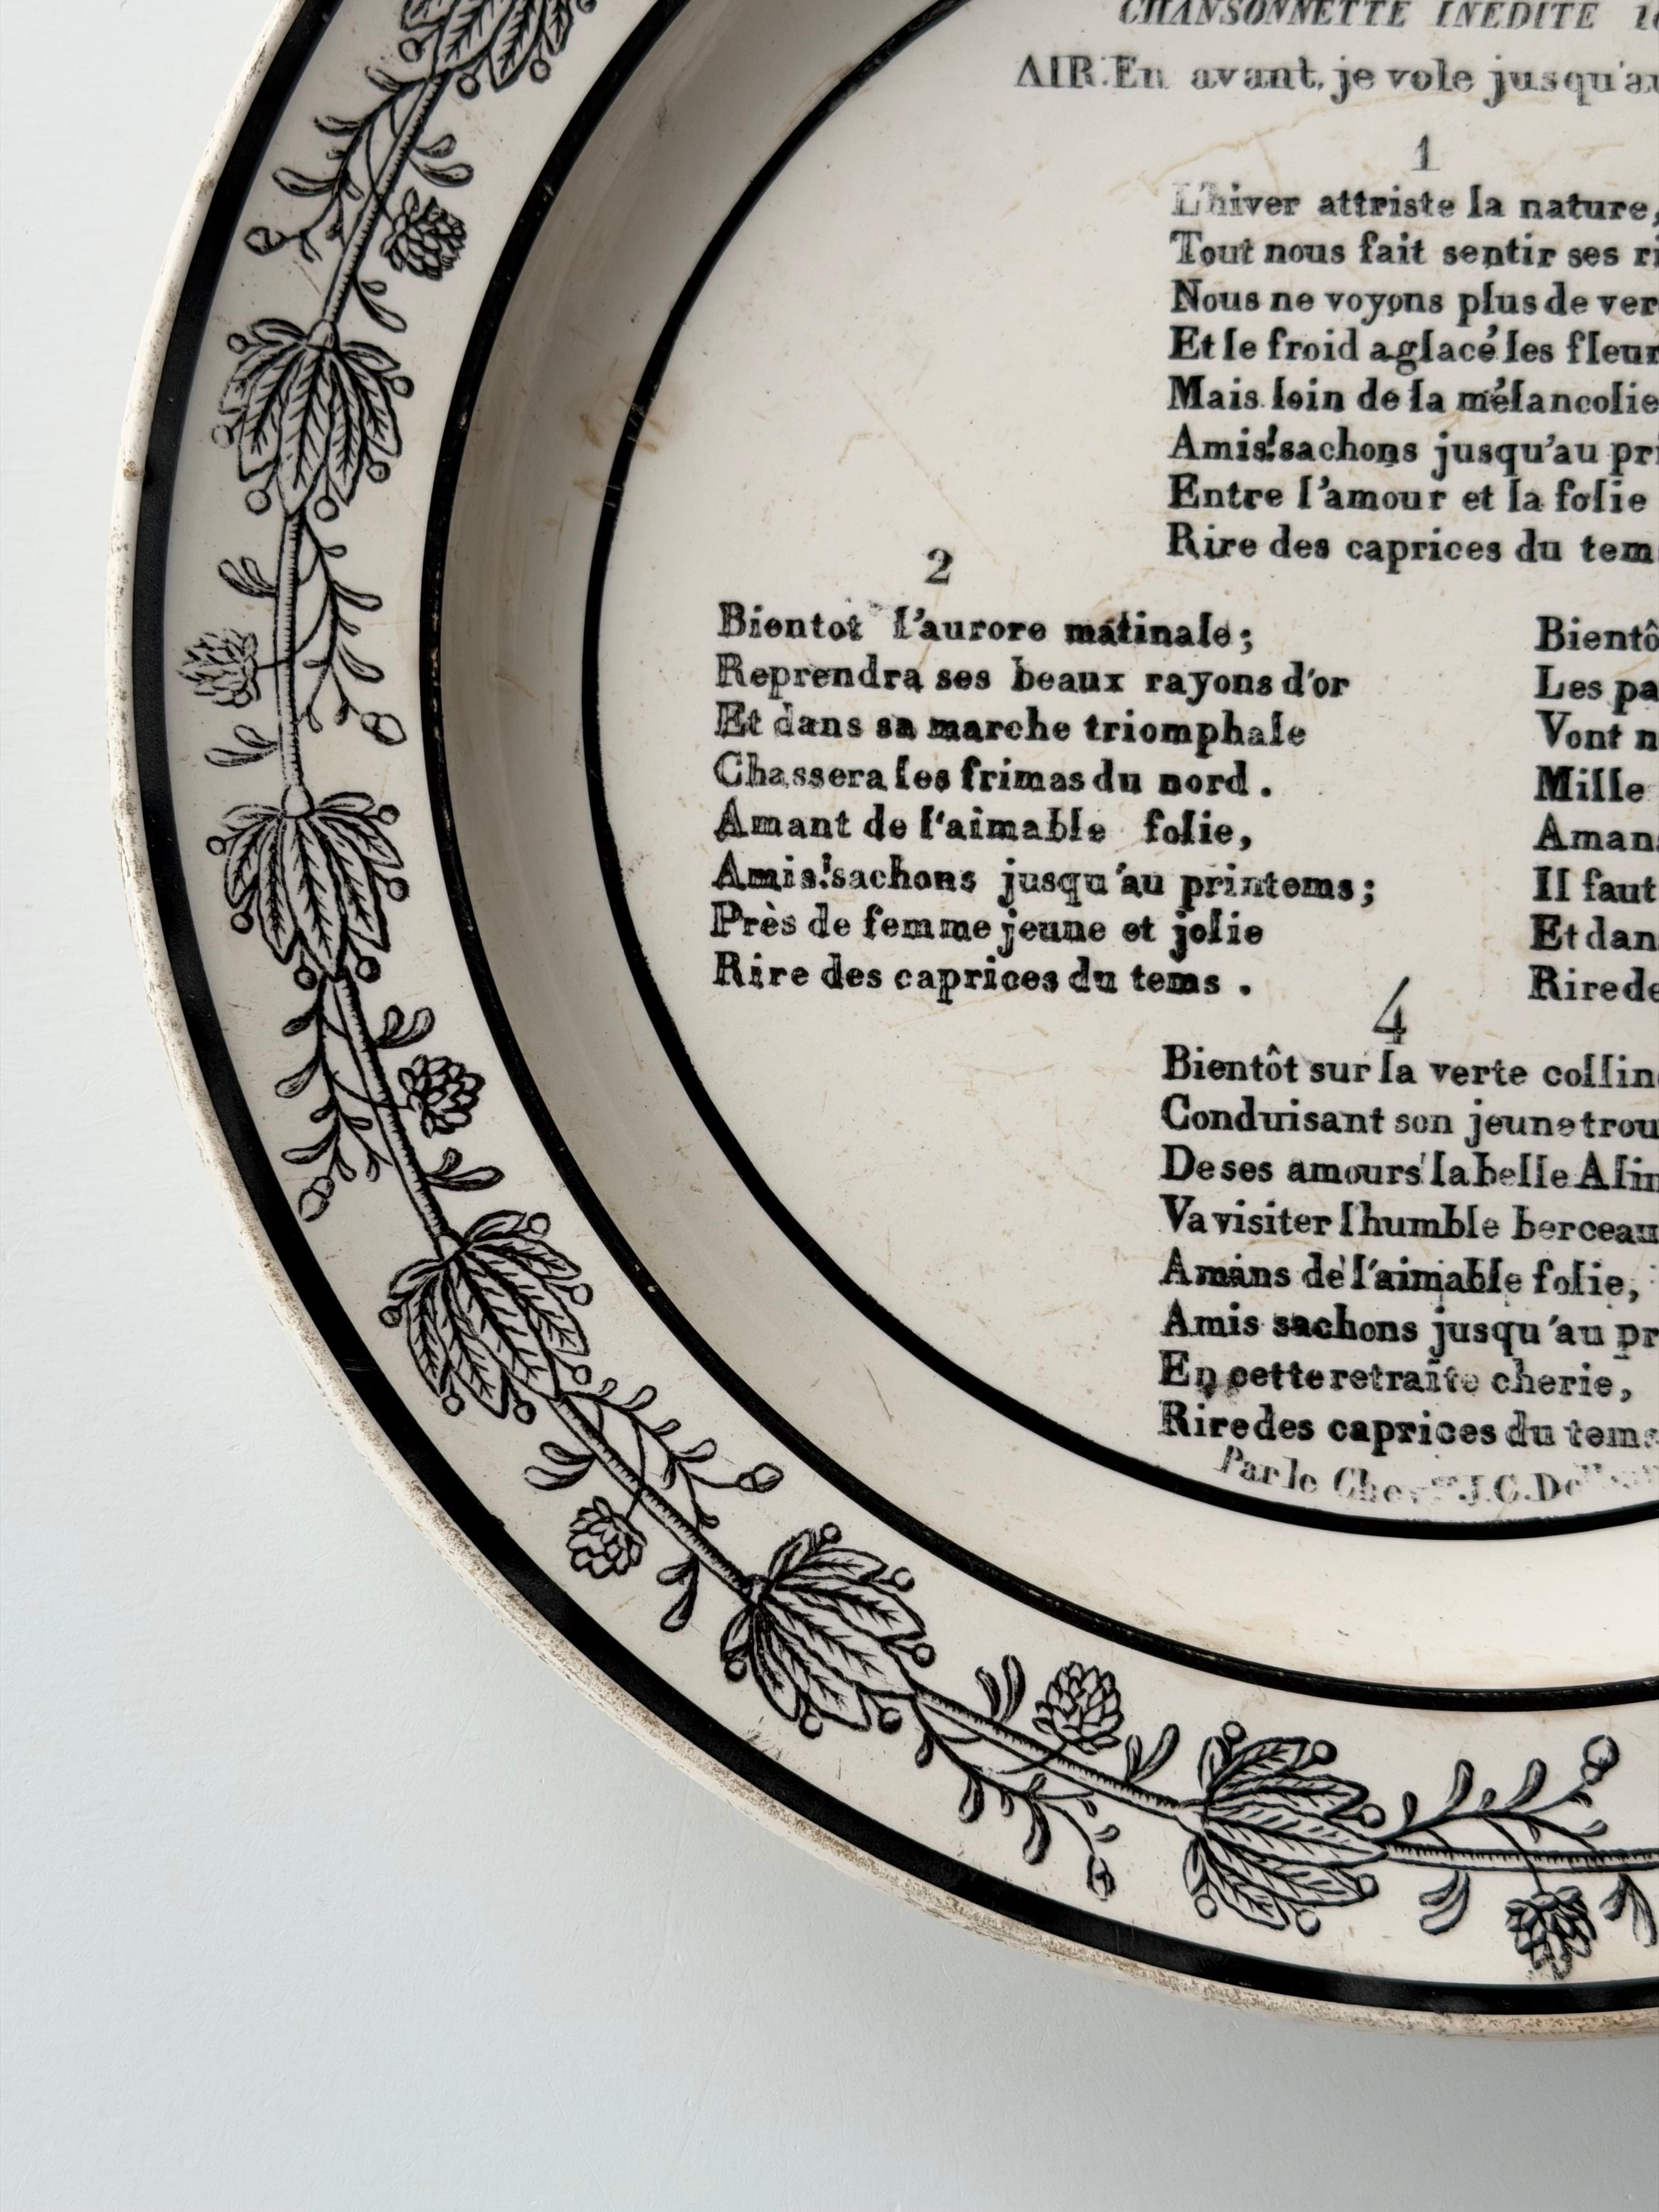 CHANSONNETTE INEDITE
AIR. En avant, je vole jusqu'au
1
L'hiver attriste la nature,
Tout nous fait sentir ses ri
Nous ne voyons plus de ver
Et le froid a glacé les fleur
Mais loin de la mélancolie
Amis! sachons jusqu'au pri
Entre l'amour et la folie
Rire des caprices du tem
2
Bientot l'aurore matinale;
Reprendra ses beaux rayons d'or
Et dans sa marche triomphale
Chassera les frimas du nord.
Amant de l'aimable folie,
Amis! sachons jusqu'au printems;
Près de femme jeune et jolie
Rire des caprices du tems.
Bientô
Les pa
Vont n
Mille
Aman
Il faut
Et dan
Rire de
4
Bientôt sur la verte colline
Conduisant son jeune trou
De ses amours la belle Alin
Va visiter l'humble berceau
Amans de l'aimable folie,
Amis sachons jusqu'au pr
En cette retraite cherie,
Rire des caprices du tems
Par le J.C.